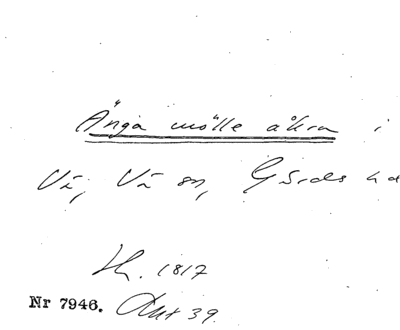 Änga mölle åkra i
Vä, Vä sn, Gärds hd
Sk. 1817
Nr 7946. Akt 39.